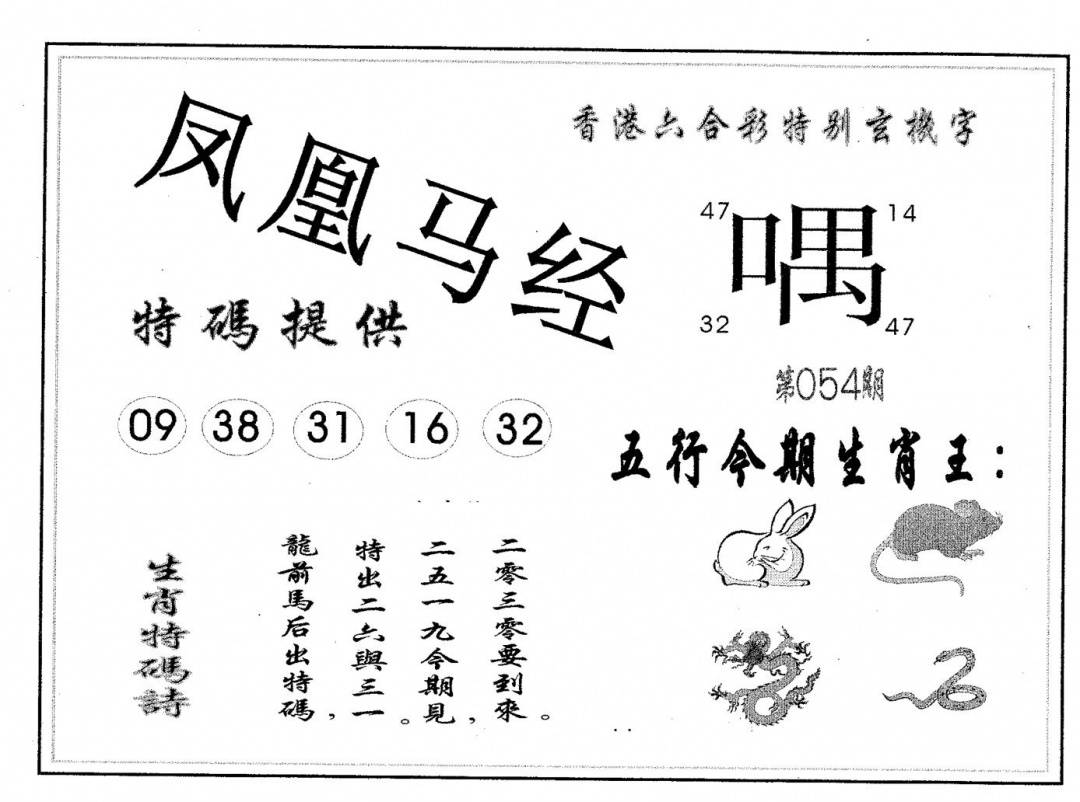 凤凰马经
香港六合彩特别玄機字
47
14
喁
32
47
特碼提供
第054期
09 38 31 16 32
五行今期生肖王：
生肖特碼詩
龍前馬后出特碼，
特出二六與三一。
二五一九今期見，
二零三零要到來。